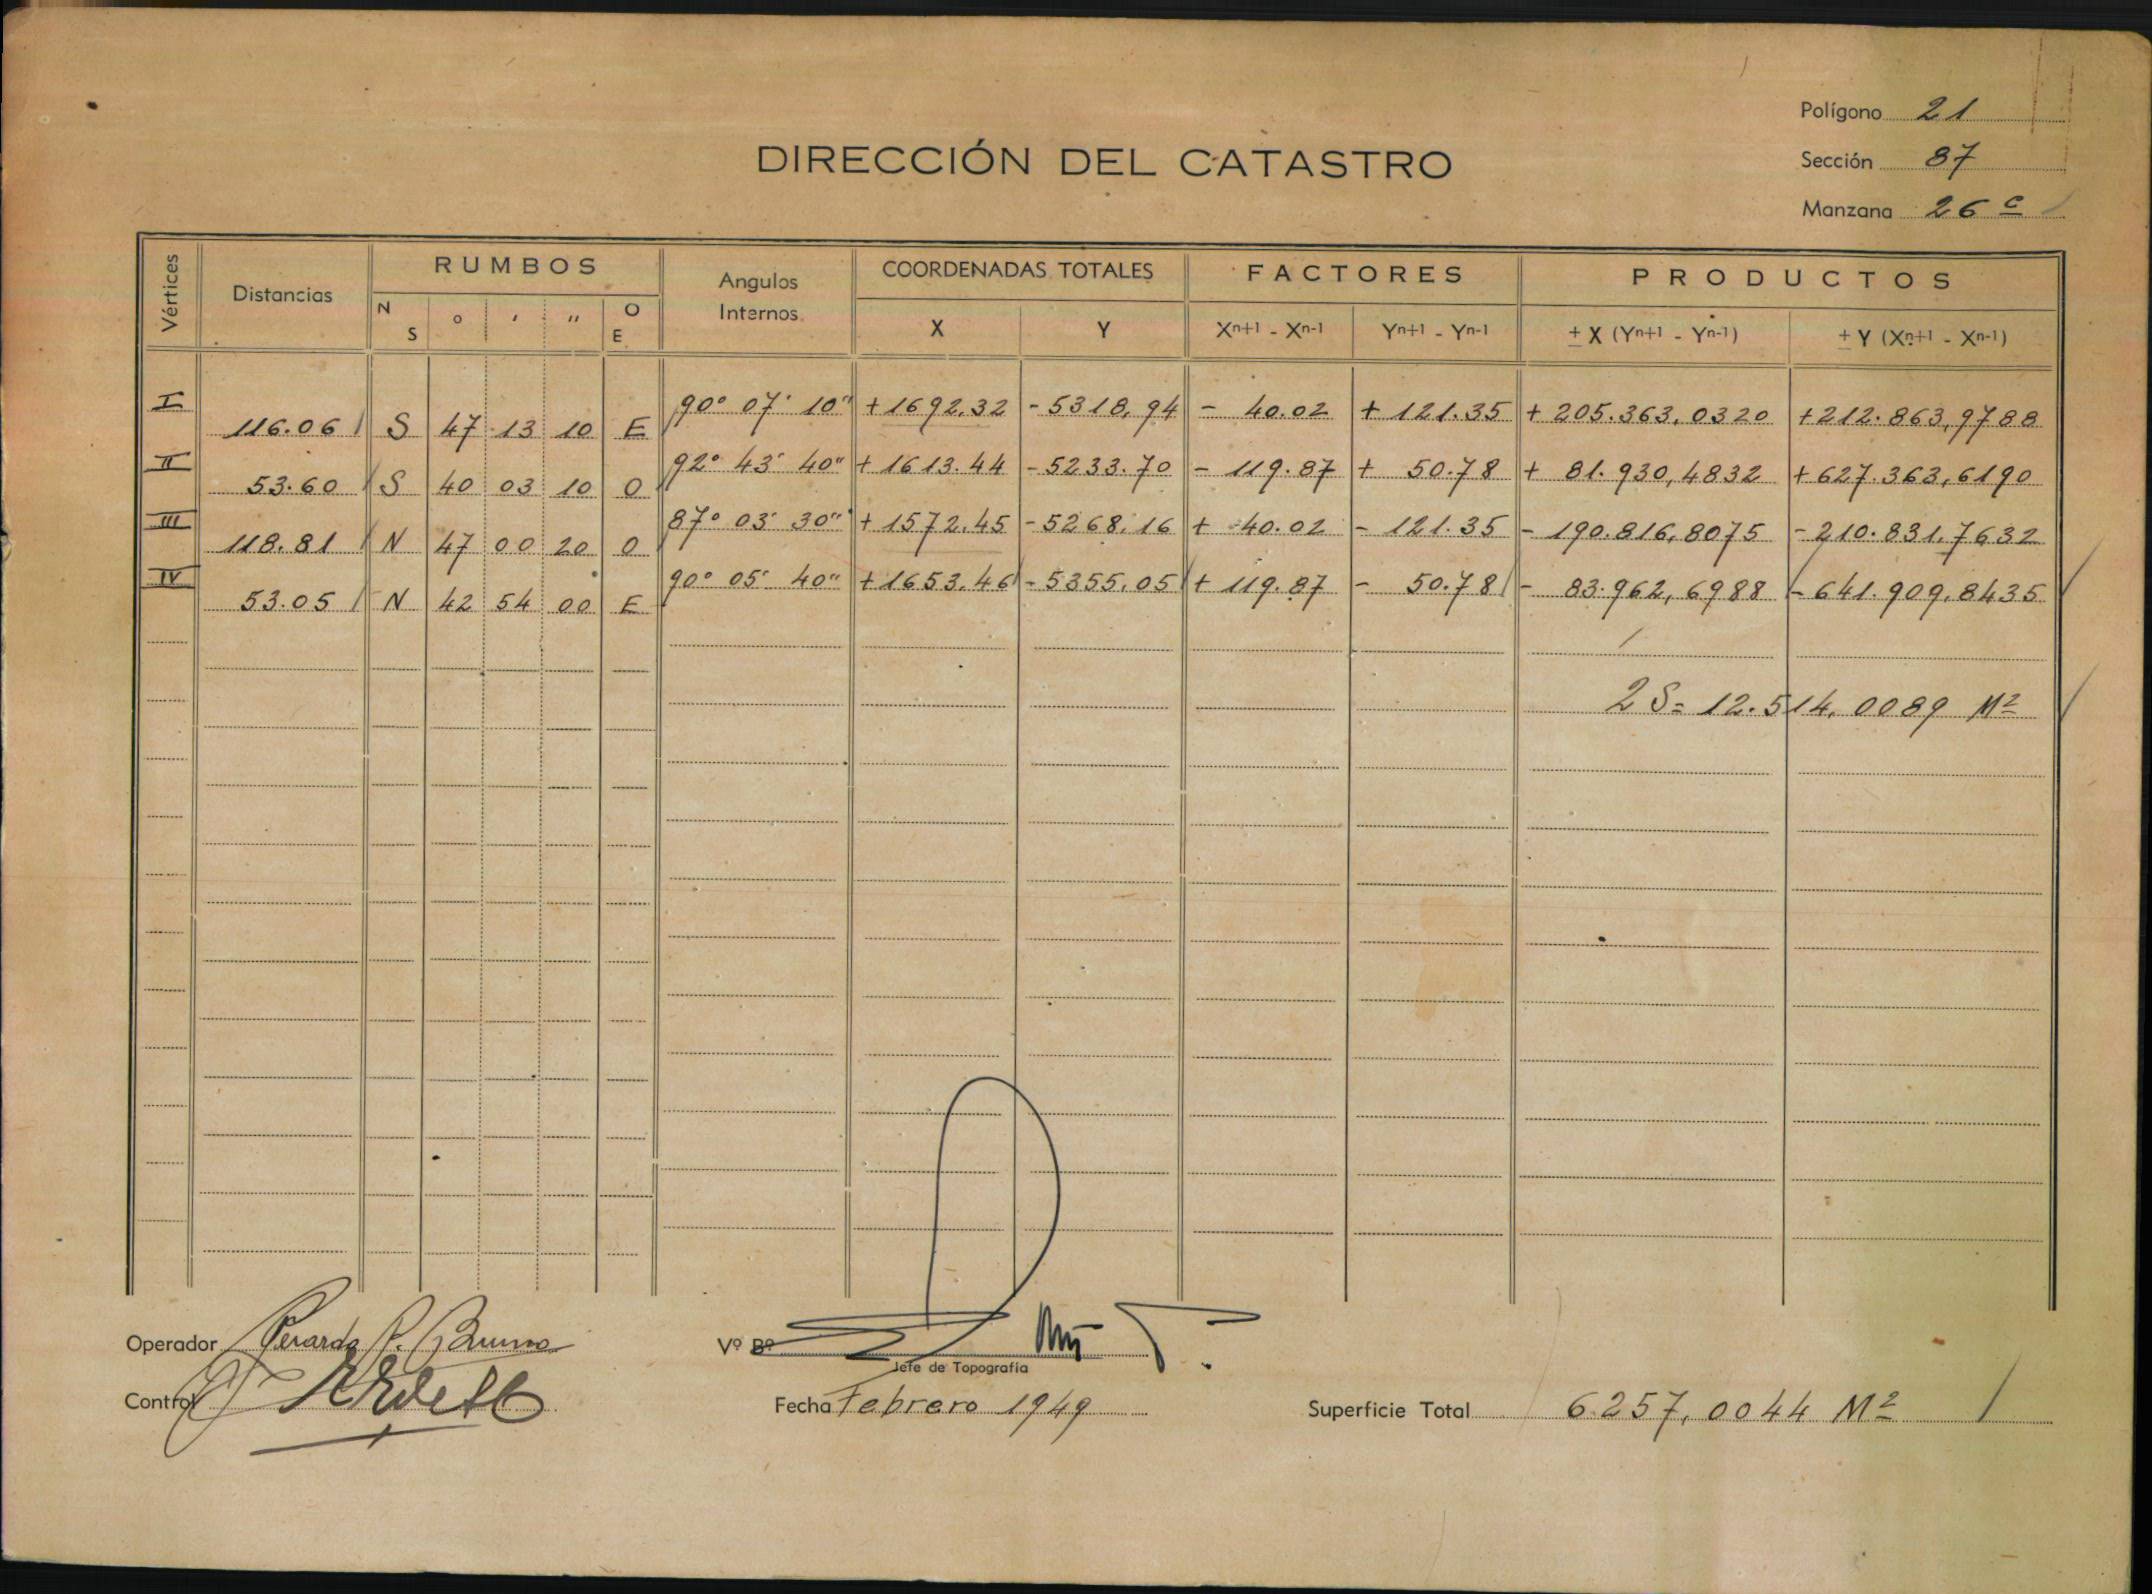 Polígono 21
DIRECCIÓN DEL CATASTRO
Sección 87
Manzana 26 c
Vértices Distancias RUMBOS N S ° ' " O E Angulos Internos COORDENADAS TOTALES X Y FACTORES Xn+1 - Xn-1 Yn+1 - Yn-1 PRODUCTOS ± X (Yn+1 - Yn-1) ± Y (Xn+1 - Xn-1)
I 90° 07' 10" +1692.32 -5318,94 - 40.02 + 121.35 + 205.363,0320 +212.863,9788
116.06 S 47 13 10 E
II 92° 43' 40" +1613.44 -5233.70 - 119.87 + 50.78 + 81.930,4832 +627.363,6190
53.60 S 40 03 10 O
III 87° 03' 30" +1572.45 -5268,16 + 40.02 - 121.35 - 190.816,8075 -210.831,7632
118.81 N 47 00 20 O
IV 90° 05' 40" +1653.46 -5355,05 + 119.87 - 50.78 - 83.962,6988 -641.909,8435
53.05 N 42 54 00 E
2 S= 12.514,0089 M2
Operador Gerardo P. Bruno
Vº Bº
Jefe de Topografía
Control
Fecha Febrero 1949
Superficie Total 6.257,0044 M2